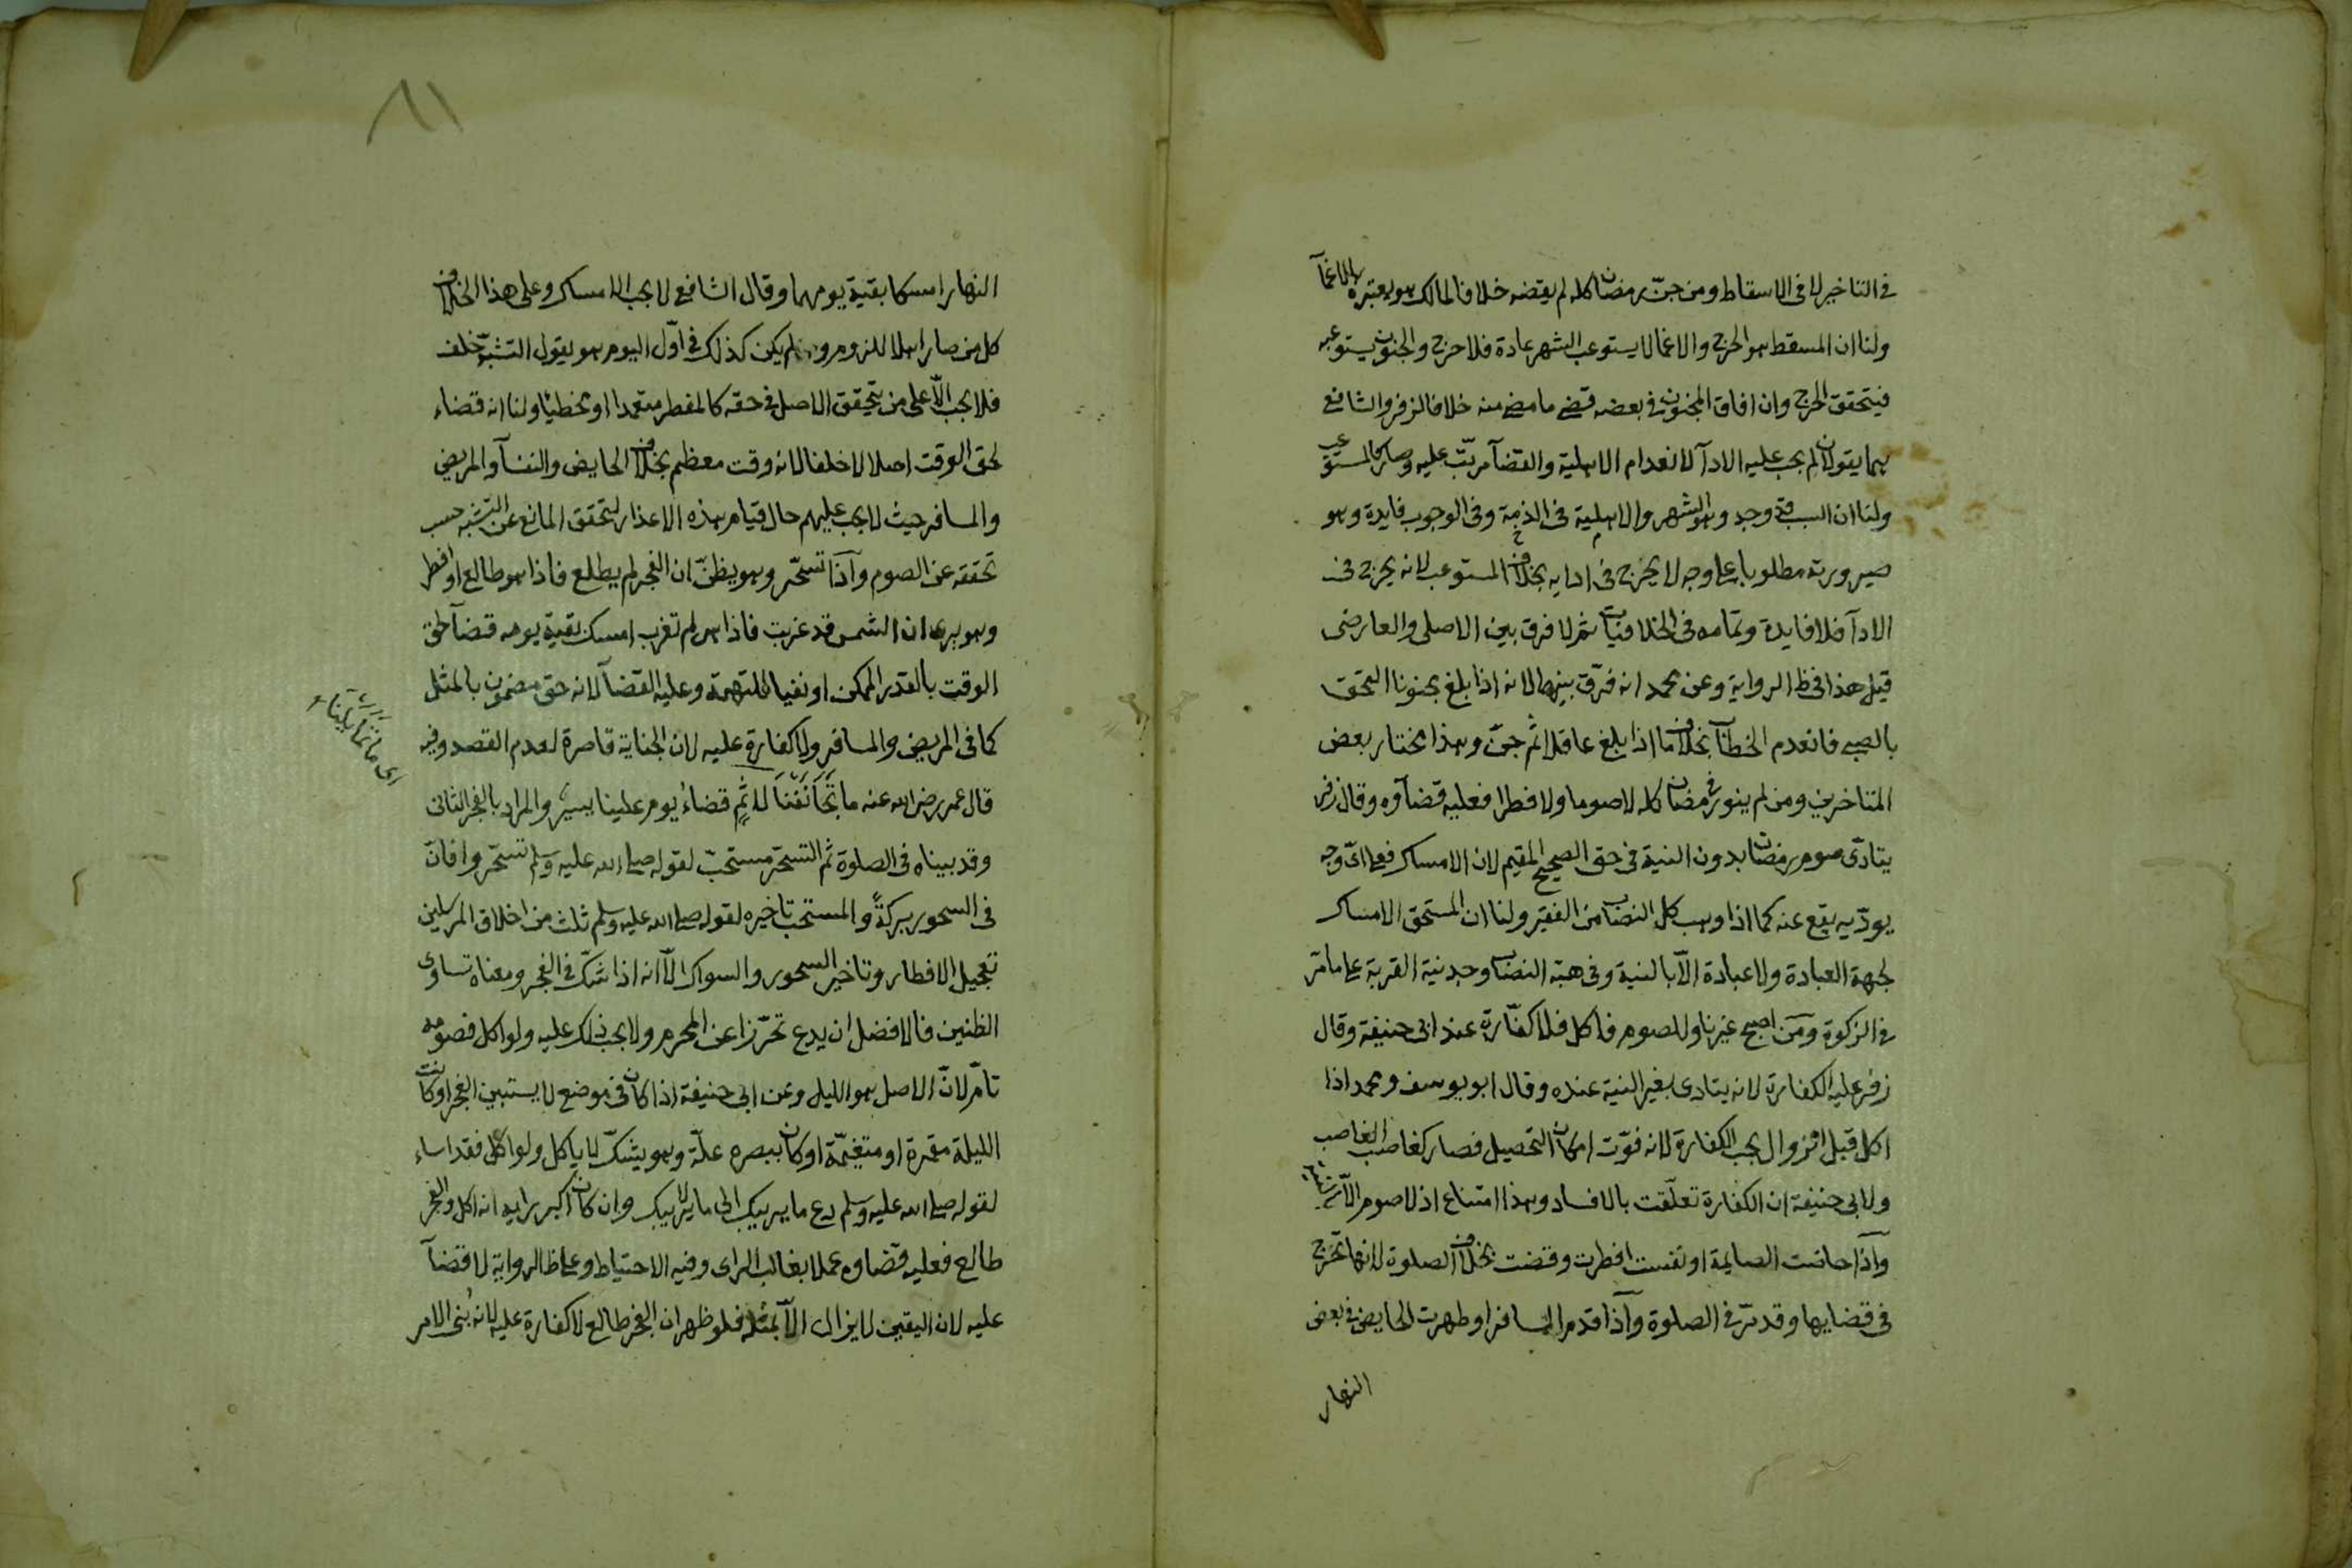 في التاخير لا في الاسقاط ومن جنّ رمضان كله لم يقضه خلافا لمالك هو يعتبره بالاغمآ
ولنا ان المسقط هو الحرج والاغما لا يستوعب الشهر عادة فلا حرج والجنون يستوعبه
فيتحقق الحرج وان افاق المجنون في بعضه قضى ما مضى منه خلافا لزفر والشافعي
هما يقولان لم يجب عليه الادآ لانعدام الاهلية والقضآ مرتّب عليه وصار كالمستوعب
ولنا ان السبب قد وجد وهو الشهر والاهلية في الذمة وفي الوجوب فايدة وهو
صيرورته مطلوبا على وجه لا يحرج في ادايه بخلاف المستوعب لانه يحرج في
الادآ فلا فايدة وتمامه في الخلافيات ثم لا فرق بين الاصلي والعارضي
قيل هذا في ظ الرواية وعن محمد انه فرّق بينهما لانه اذا بلغ مجنونا التحق
بالصبي فانعدم الخطآب بخلاف ما اذا بلغ عاقلا ثم جنّ وهذا مختار بعض
المتاخرين ومن لم ينو في رمضان كله لا صوما ولا فطرا فعليه قضآوه وقال زفر
يتادّى صوم رمضان بدون النية في حق الصحيح المقيم لان الامساك فعلى ايّ وجه
يودّيه يقع عنه كما اذا وهب كل النصاب من الفقير ولنا ان المستحق الامساك
لجهة العبادة ولا عبادة الّا بالنية وفي هبة النصاب وجد نية القربة على ما مرّ
في الزكوة ومن اصبح غير ناو للصوم فاكل فلا كفّارة عند ابي حنيفة وقال
زفر عليه الكفارة لانه يتادى بغير النية عنده وقال ابو يوسف ومحمد اذا
اكل قبل الزوال يجب الكفارة لانه فوّت امكان التحصيل فصار كغاصب الغاصب
ولابي حنيفة ان الكفارة تعلّقت بالافساد وهذا امتناع اذ لا صوم الّا بالنية
وآذا حاضت الصايمة او نفست افطرت وقضت بخلاف الصلوة لانها تحرج
في قضايها وقد مرّ في الصلوة وآذا قدم المسافر او طهرت الحايض في بعض
النهار
٨١
النهار امسكا بقية يومهما وقال الشافعي لا يجب الامساك وعلى هذا الخلاف
كل من صار اهلا للزوم ولم يكن كذلك في اوّل اليوم هو يقول التشبّه خلف
فلا يجب الّا على من يتحقق الاصل في حقه كالمفطر متعمدا او مخطيا ولنا انه قضاء
لحق الوقت اصلا لا خلفا لانه وقت معظم بخلاف الحايض والنفسآ والمريض
والمسافر حيث لا يجب عليهم حال قيام هذه الاعذار لتحقق المانع عن التشبه حسب
تحققه عن الصوم وآذا تسحّر وهو يظنّ ان الفجر لم يطلع فاذا هو طالع او افطر
وهو يرى ان الشمس قد غربت فاذا هي لم تغرب امسك بقية يومه قضآ لحق
الوقت بالقدر الممكن او نفيا للتهمة وعليه القضآ لانه حق مضمون بالمثل
كما في المريض والمسافر ولا كفارة عليه لان الجناية قاصرة لعدم القصد وفيه
قال عمر رضي الله عنه ما تَجَانَفْنَا لاثمٍ قضاءُ يوم علينا يسيرٌ والمراد بالفجر الثاني
وقد بيناه في الصلوة ثم التسحّر مستحبّ لقوله صلى الله عليه وسلم تسحّروا فانّ
في السحور بركةً والمستحب تاخيره لقوله صلى الله عليه وسلم ثلث من اخلاق المرسلين
تعجيل الافطار وتاخير السحور والسواك الّا انه اذا شكّ في الفجر ومعناه تساوى
الظنين فالافضل ان يدع تحرّزا عن المحرم ولا يجب ذلك عليه ولو اكل فصومه
تامّ لانّ الاصل هو الليل وعن ابي حنيفة اذا كان في موضع لا يستبين الفجر او كانت
الليلة مقمرة او متغيّمة او كان ببصره علّة وهو يشكّ لا ياكل ولو اكل فقد اساء
لقوله صلى الله عليه وسلم دع ما يريبك الى ما لا يريبك وان كان اكبر رايه انه اكل والفجر
طالع فعليه قضاوه عملا بغالب الراى وفيه الاحتياط وعلى ظ الرواية لا قضآ
عليه لان اليقين لا يزال الّا بمثله فلو ظهر ان الفجر طالع لا كفارة عليه لانه بُنى الامر